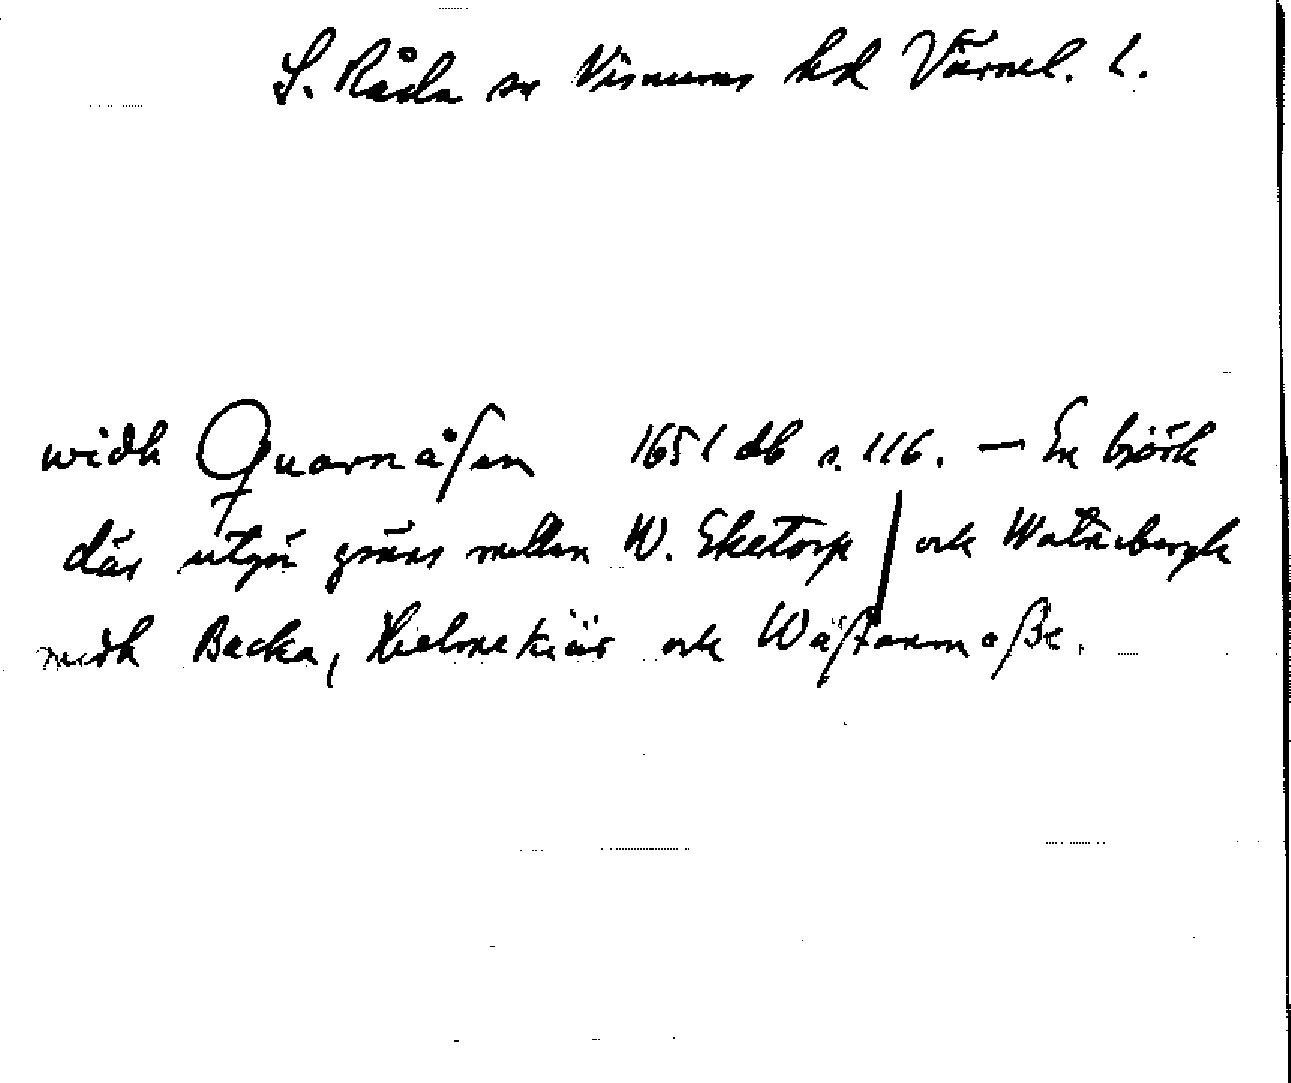 S. Råda sn Visnums hd Värml. l.
widh Quarnåsen 1651 db s. 116. — En björk
där utgör gräns mellan W. Eketorp / och Watnebergh
medh Backa, Hielmekiär och Wästanmoße.